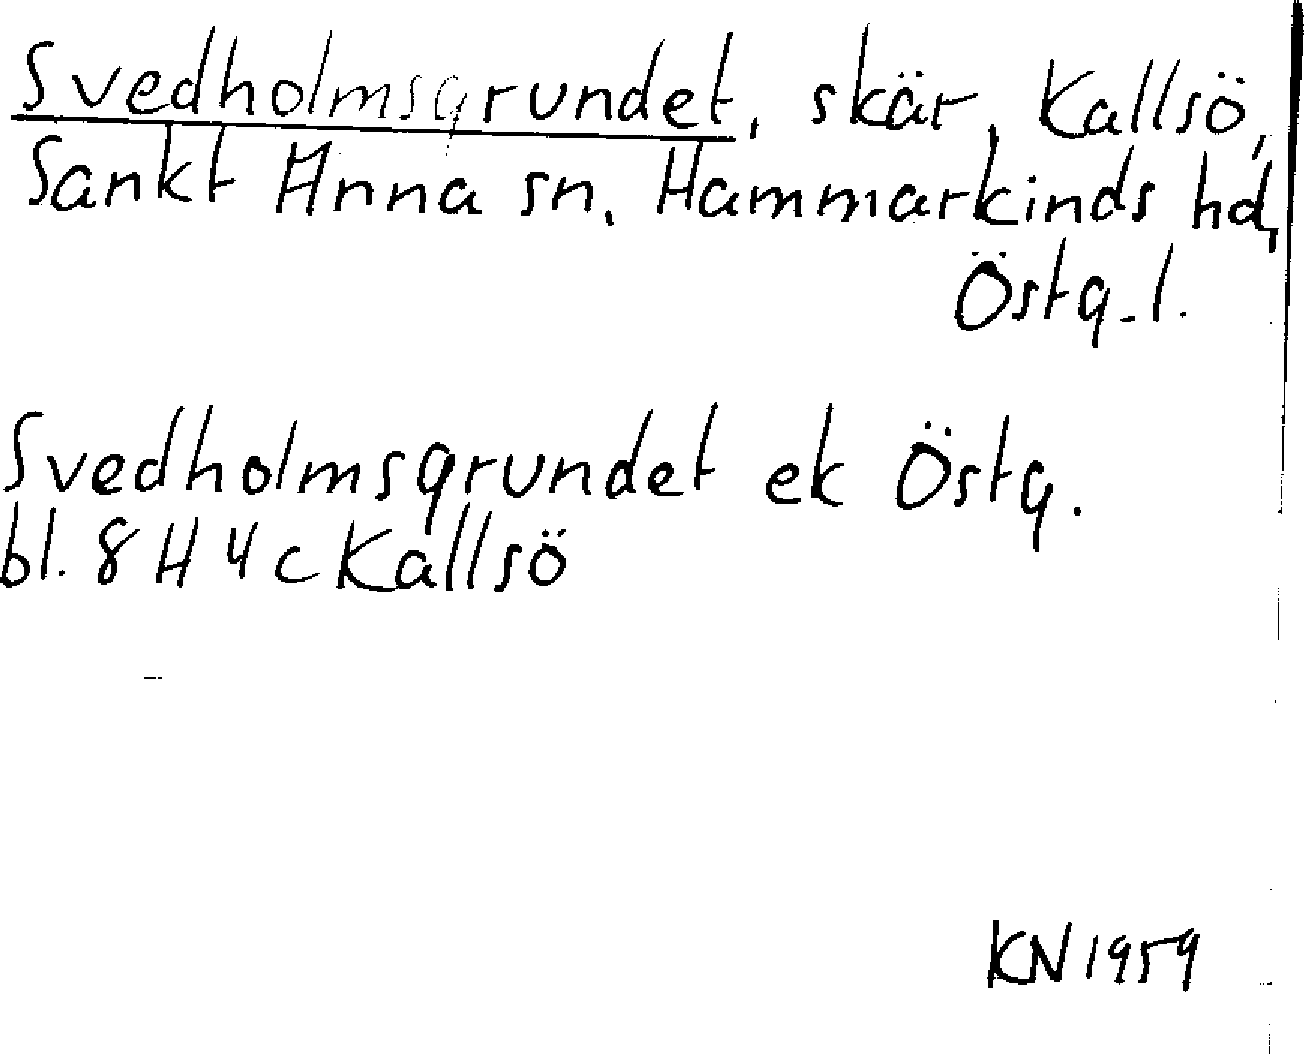 Svedholmsgrundet, skär, Kallsö,
Sankt Anna sn, Hammarkinds hd,
Östg.l.
Svedholmsgrundet ek Östg.
bl. 8 H 4 c Kallsö
KN 1959